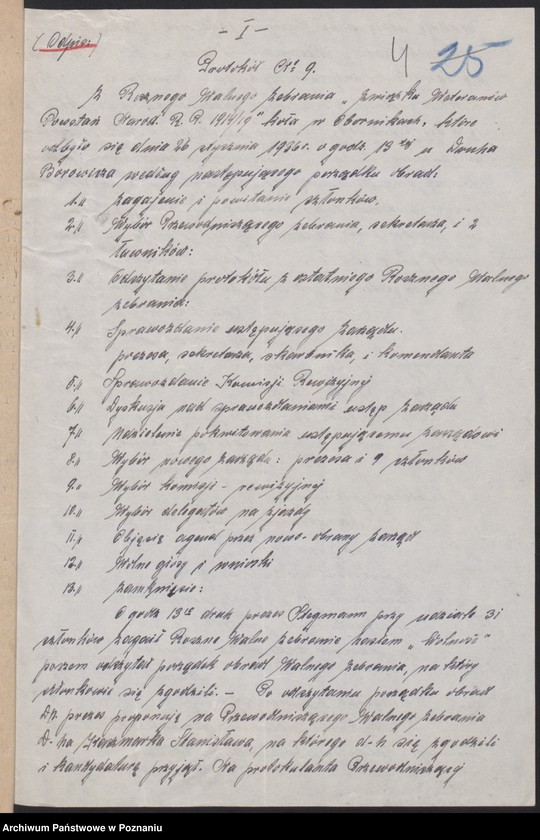 – I –
(Odpis:)
4 25
Protokół Nr 9.
Z Rocznego Walnego Zebrania „Związku Weteranów
Powstań Narod. R.P. 1914/19" koła w Obornikach, które
odbyło się dnia 26 stycznia 1936 r. o godz. 13 tej u Druha
Borowicza według następującego porządku obrad:
1.// Zagajenie i powitanie członków.
2.// Wybór Przewodniczącego zebrania, sekretarza, i 2
ławników:
3.// Odczytanie protokółu z ostatniego Rocznego Walnego
zebrania:
4.// Sprawozdanie ustępującego zarządu.
prezesa, sekretarza, skarbnika, i komendanta
5.// Sprawozdanie Komisji Rewizyjnej
6.// Dyskusja nad sprawozdaniami ustęp zarządu
7.// Udzielenie pokwitowania ustępującemu zarządowi
8.// Wybór nowego zarządu: prezesa i 9 członków
9.// Wybór komisji - rewizyjnej
10.// Wybór delegatów na zjazdy
11.// Objęcie agend przez nowo-obrany zarząd
12.// Wolne głosy i wnioski
13.// Zamknięcie:
O godz 13 te druh prezes przy udziale 31
członków zagaił Roczne Walne Zebranie hasłem „Wolność"
poczem odczytał porządek obrad Walnego Zebrania, na który
członkowie się zgodzili. – Po odczytaniu porządku obrad
Dh. prezes proponuje na Przewodniczącego Walnego Zebrania
D-ha Kaczmarka Stanisława, na którego d-h się zgodzili
i kandydaturę przyjął. Na protokulanta Przewodniczącej
Archiwum Państwowe w Poznaniu